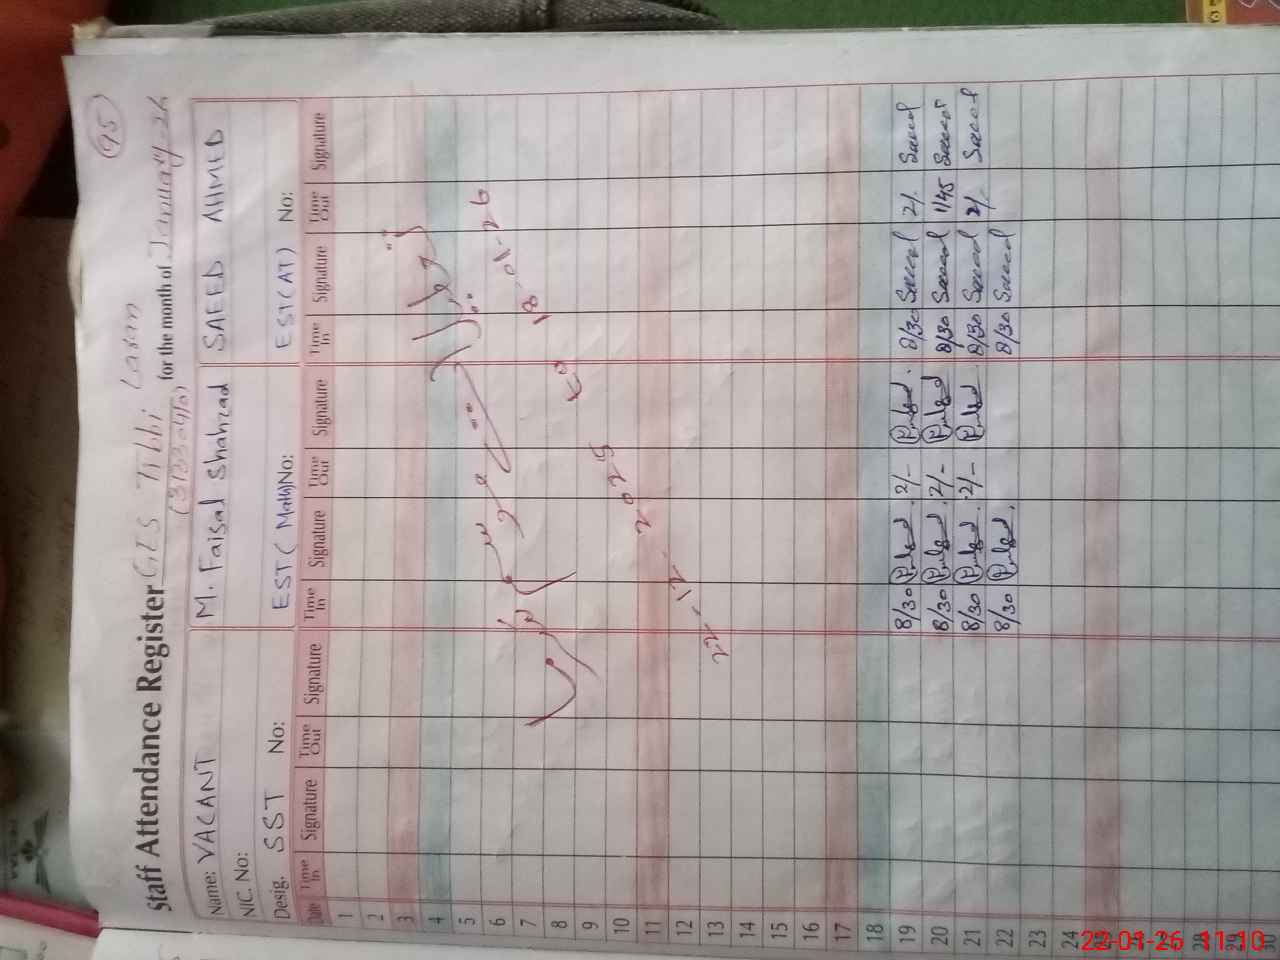 95
Staff Attendance Register GES Tibbi
(31330410) for the month of January-26
Name: VACANT M. Faisal Shahzad SAEED AHMED
NIC. No:
Desig. SST No: EST (Math) No: EST (AT) No:
Date Time In Signature Time Out Signature Time In Signature Time Out Signature Time In Signature Time Out Signature
1
2
3
4
5
6
7
8
9
10
11
12
13
14
15
16
17
18
19 8/30 2/- 8/30 Saeed 2/. Saeed
20 8/30 2/- 8/30 Saeed 1/45 Saeed
21 8/30 2/- 8/30 Saeed 2/. Saeed
22 8/30 8/30 Saeed
23
24
27
28
29
30
موسم سرما کی تعطیلات
22-12-2025 تا 18-01-26
22-01-26 11:10